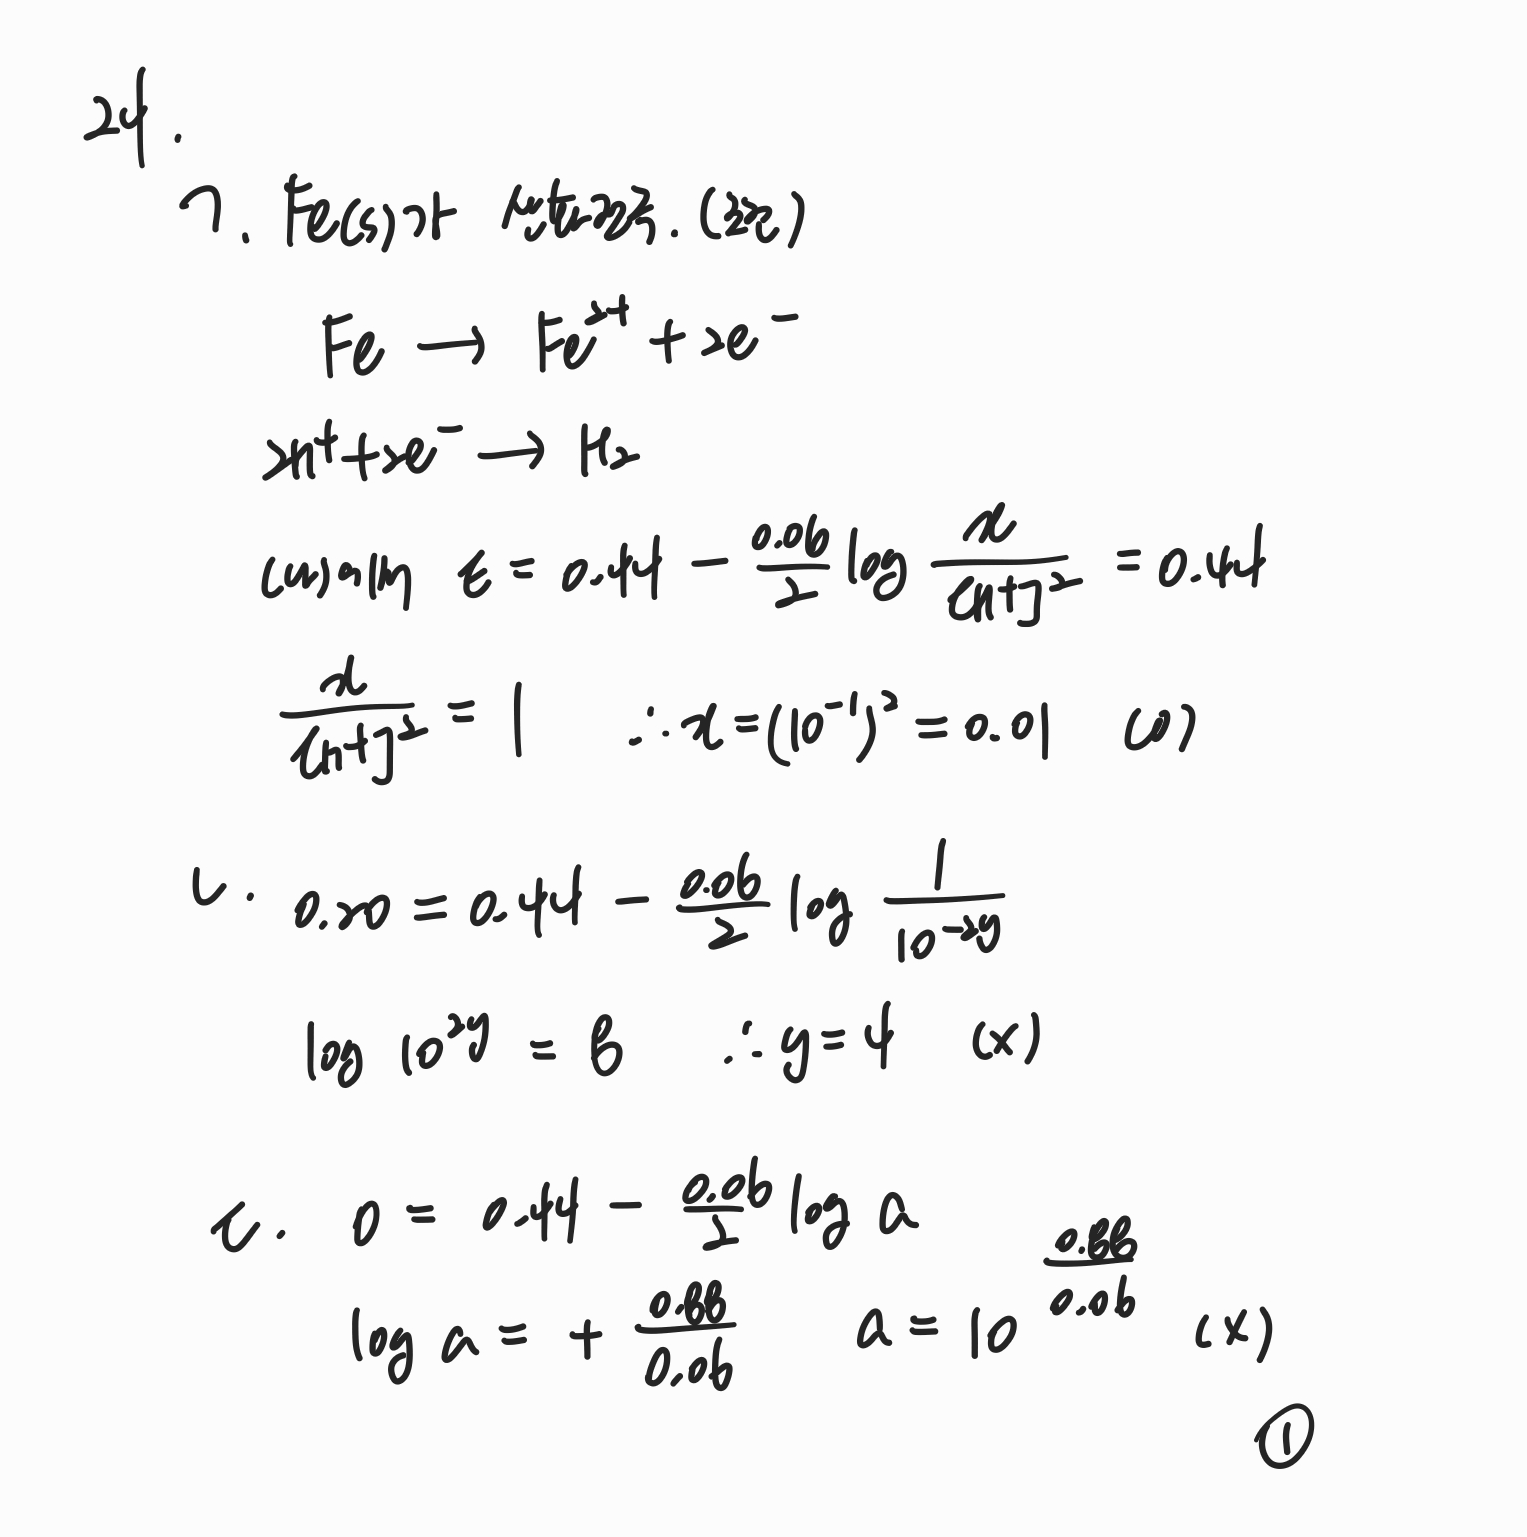 24.
ㄱ. Fe(s)가 산화전극. (표준)
Fe → Fe²⁺ + 2e⁻
2H⁺ + 2e⁻ → H₂
(가)에서 E = 0.44 - 0.06/2 log x/[H⁺]² = 0.44
x/[H⁺]² = 1 ∴ x = (10⁻¹)² = 0.01 (o)
ㄴ. 0.20 = 0.44 - 0.06/2 log 1/10⁻²ʸ
log 10²ʸ = 8 ∴ y = 4 (x)
ㄷ. 0 = 0.44 - 0.06/2 log a
log a = + 0.88/0.06 a = 10^(0.88/0.06) (x)
①